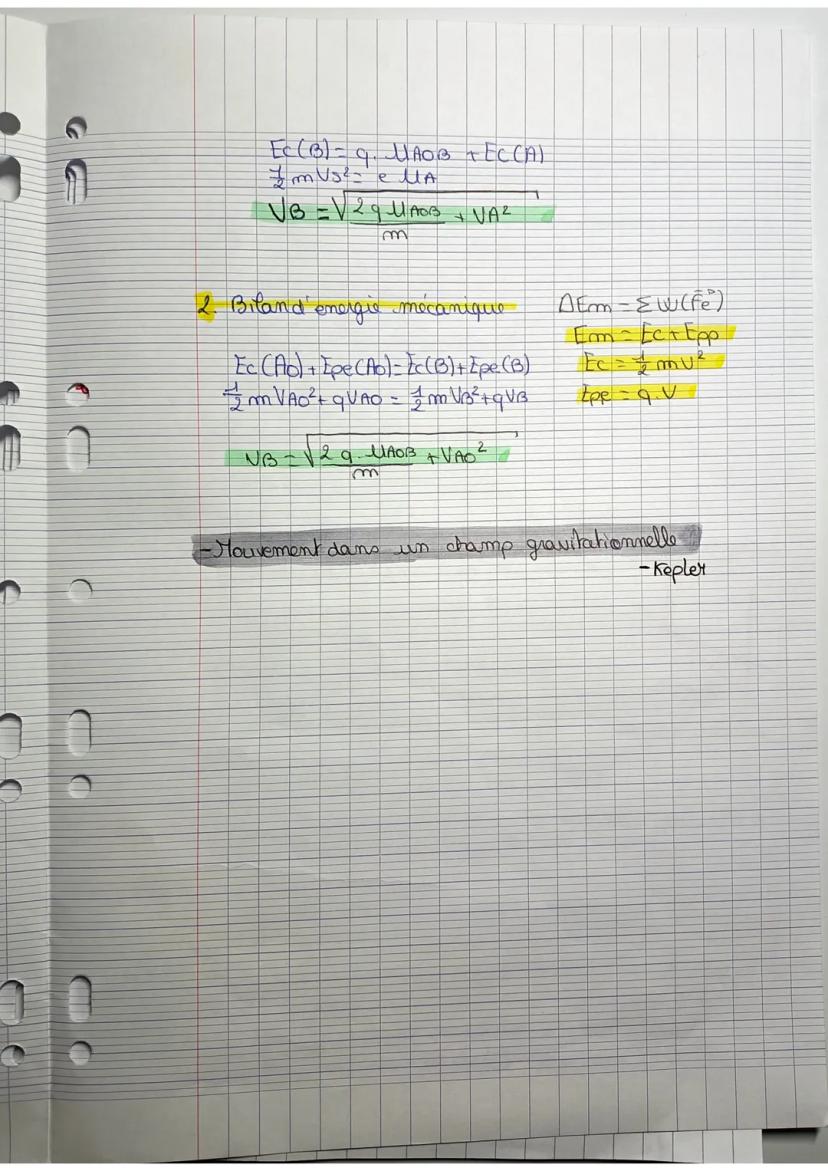 Ec(B) = q. UAOB + Ec(A)
½ m VB² = e UA
VB = √(2 q UAOB / m + VA²)
2. Bilan d'energie mécanique
ΔEm = Σ W(Fe)
Em = Ec + Epp
Ec(A0) + Epe(A0) = Ec(B) + Epe(B)
Ec = ½ mv²
½ m VA0² + qVA0 = ½ m VB² + qVB
Epe = q.V
VB = √(2 q. UAOB / m + VA0²)
- Mouvement dans un champ gravitationnelle
- Kepler